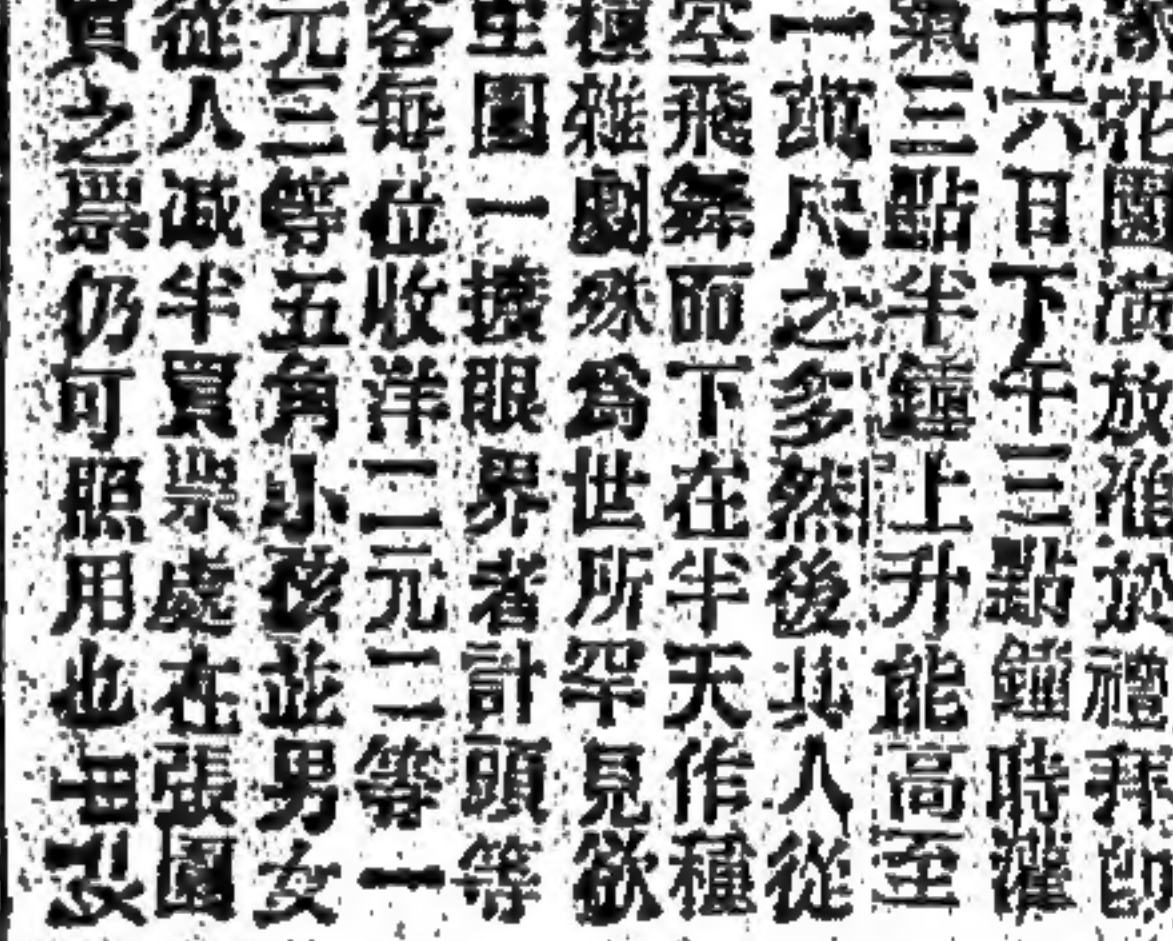 家花園演放准於禮拜即
十六日下午三點鐘時灌
氣三點半鐘上升能高至
一萬尺之多然後其人從
空飛舞而下在半天作種
種雜劇殊爲世所罕見欲
至園一擴眼界者計頭等
客每位收洋二元二等一
元三等五角小孩並男女
從人減半買票處在張園
買之票仍可照用也